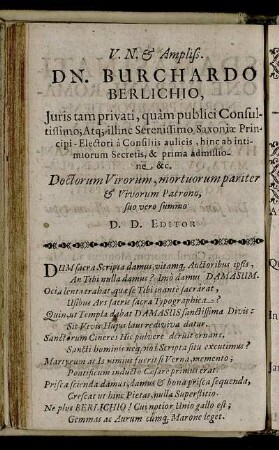 V. N. & Ampliſs.
DN. BURCHARDO
BERLICHIO,
Juris tam privati, quàm publici Conſul-
tiſſimo, Atq; illinc Sereniſſimo Saxoniæ Prin-
cipi-Electori à Conſiliis aulicis, hinc ab inti-
miorum Secretis, & prima admiſſio-
ne, &c.
Doctorum Virorum, mortuorum pariter
& Vivorum Patrono,
ſuo vero ſummo
D. D. EDITOR
DUM ſacra Scripta damus, vitamq; Auctoribus ipſis,
An Tibi nulla damus? Imò damus DAMASUM.
Otia lenta trahat quaſe Tibi inante ſacrarat,
Uſibus Ars faciſ ſacra Typographica?
Quin, ut Templa dabat DAMASUS ſanctiſſima Divis:
Sit Vivis Hujus laus rediviva datur.
Sanctorum Cineres Hic pulvere deruit ornans,
Sancti hominis neq; nos Scripta ſitu excutimus?
Martyrum at Is nimius fuerit ſi Verna, memento;
Pontificum inducto Ceſare primus erat.
Priſca ſcienda damus, damus & bona priſca ſequenda,
Creſcat ut hinc Pietas, nulla Superſtitio.
Ne plus BERLICHIO! Cui notior Unio gallo eſt;
Gemmas ac Aurum cumq; Marone leget.